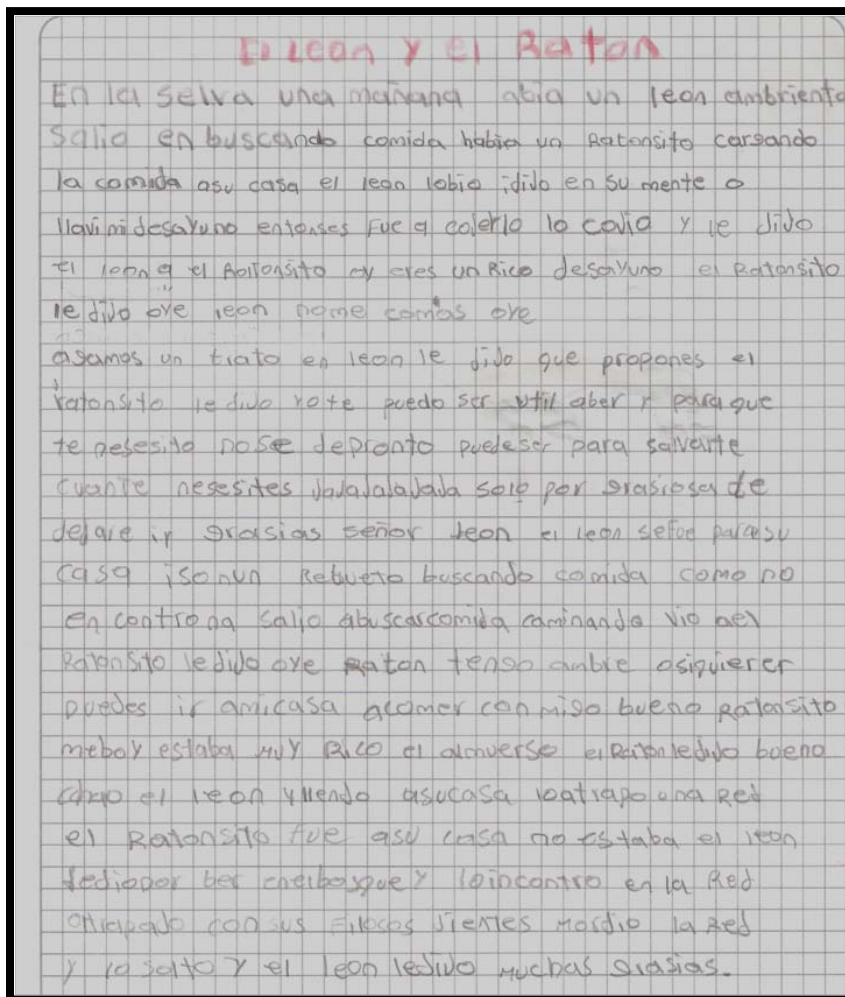 El Leon y el Raton
En la selva una mañana abia un leon ambriento
salio en buscando comida habia un Ratonsito cargando
la comida asu casa el leon lobio idijo en su mente o
llavi mi desayuno entonses fue a cojerlo lo cojio y le dijo
el leon a el Ratonsito oy eres un Rico desayuno el Ratonsito
le dijo oye leon nome comas oye
agamos un trato en leon le dijo que propones el
ratonsito le dijo yo te puedo ser util aber y para que
te nesesito nose depronto puedeser para salvarte
cuante nesesites Jajajajajaja solo por grasiosa te
dejare ir grasias señor leon el leon sefue parasu
casa iso nun Rebueto buscando comida como no
en contro na salio abuscarcomida caminando vio ael
Ratonsito ledijo oye raton tengo ambre osiquierer
puedes ir amicasa acomer con migo bueno Ratonsito
meboy estaba muy Rico el almuerso el Raton ledijo bueno
chao el leon yllendo asucasa loatrapo una Red
el Ratonsito fue asu casa no estaba el leon
lediopor ber enelbosque y loincontro en la Red
atrapado con sus filocos dientes mordio la Red
y lo solto y el leon ledijo muchas grasias.